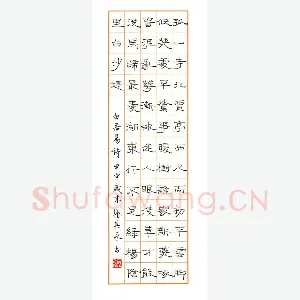 孤山寺北賈亭西水面初平雲腳
低幾處早鶯爭暖樹誰家新燕啄
春泥亂花漸欲迷人眼淺草才能
沒馬蹄最愛湖東行不足綠楊陰
里白沙堤
白居易詩
Shufawang.CN